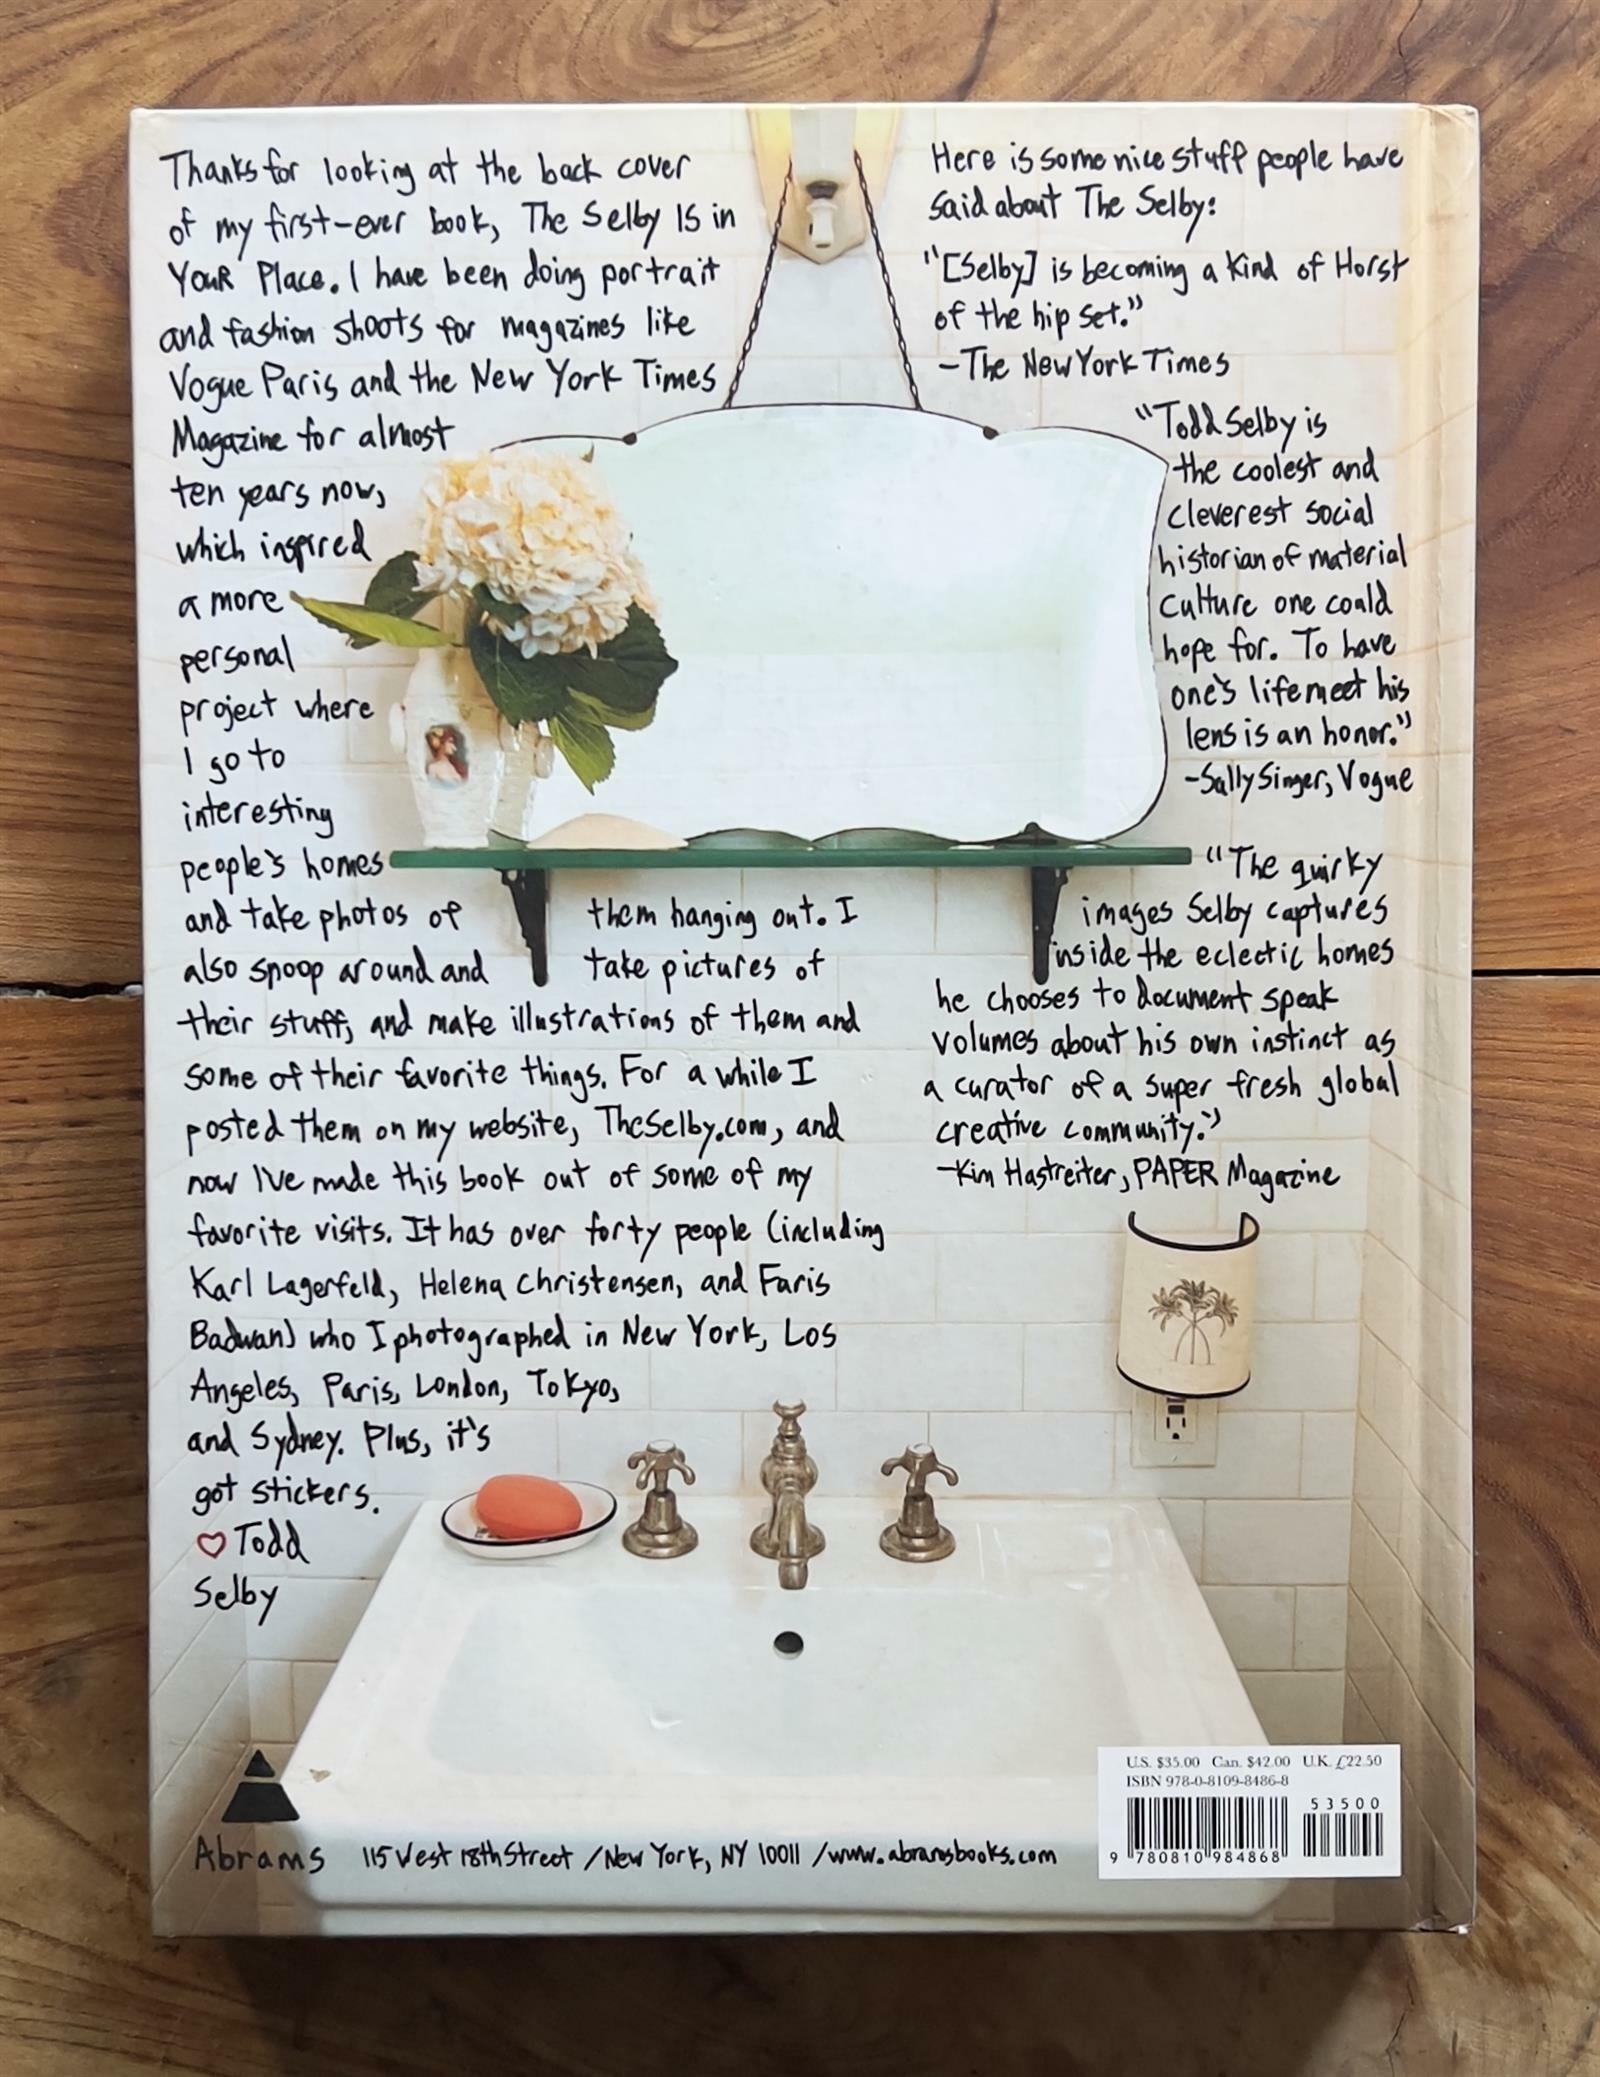 Thanks for looking at the back cover
of my first-ever book, The Selby IS in
YouR Place. I have been doing portrait
and fashion shoots for magazines like
Vogue Paris and the New York Times
Magazine for almost
ten years now,
which inspired
a more
personal
project where
I go to
interesting
people's homes
and take photos of them hanging out. I
also snoop around and take pictures of
their stuff, and make illustrations of them and
some of their favorite things. For a while I
posted them on my website, TheSelby.com, and
now I've made this book out of some of my
favorite visits. It has over forty people (including
Karl Lagerfeld, Helena Christensen, and Faris
Badwan) who I photographed in New York, Los
Angeles, Paris, London, Tokyo,
and Sydney. Plus, it's
got stickers.
♡ Todd
Selby
Here is some nice stuff people have
said about The Selby:
"[Selby] is becoming a kind of Horst
of the hip set."
-The New York Times
"Todd Selby is
the coolest and
cleverest social
historian of material
culture one could
hope for. To have
one's life meet his
lens is an honor."
-Sally Singer, Vogue
"The quirky
images Selby captures
inside the eclectic homes
he chooses to document speak
volumes about his own instinct as
a curator of a super fresh global
creative community."
-Kim Hastreiter, PAPER Magazine
Abrams 115 West 18th Street / New York, NY 10011 / www.abramsbooks.com
U.S. $35.00 Can. $42.00 U.K. £22.50
ISBN 978-0-8109-8486-8
53500
9 780810 984868